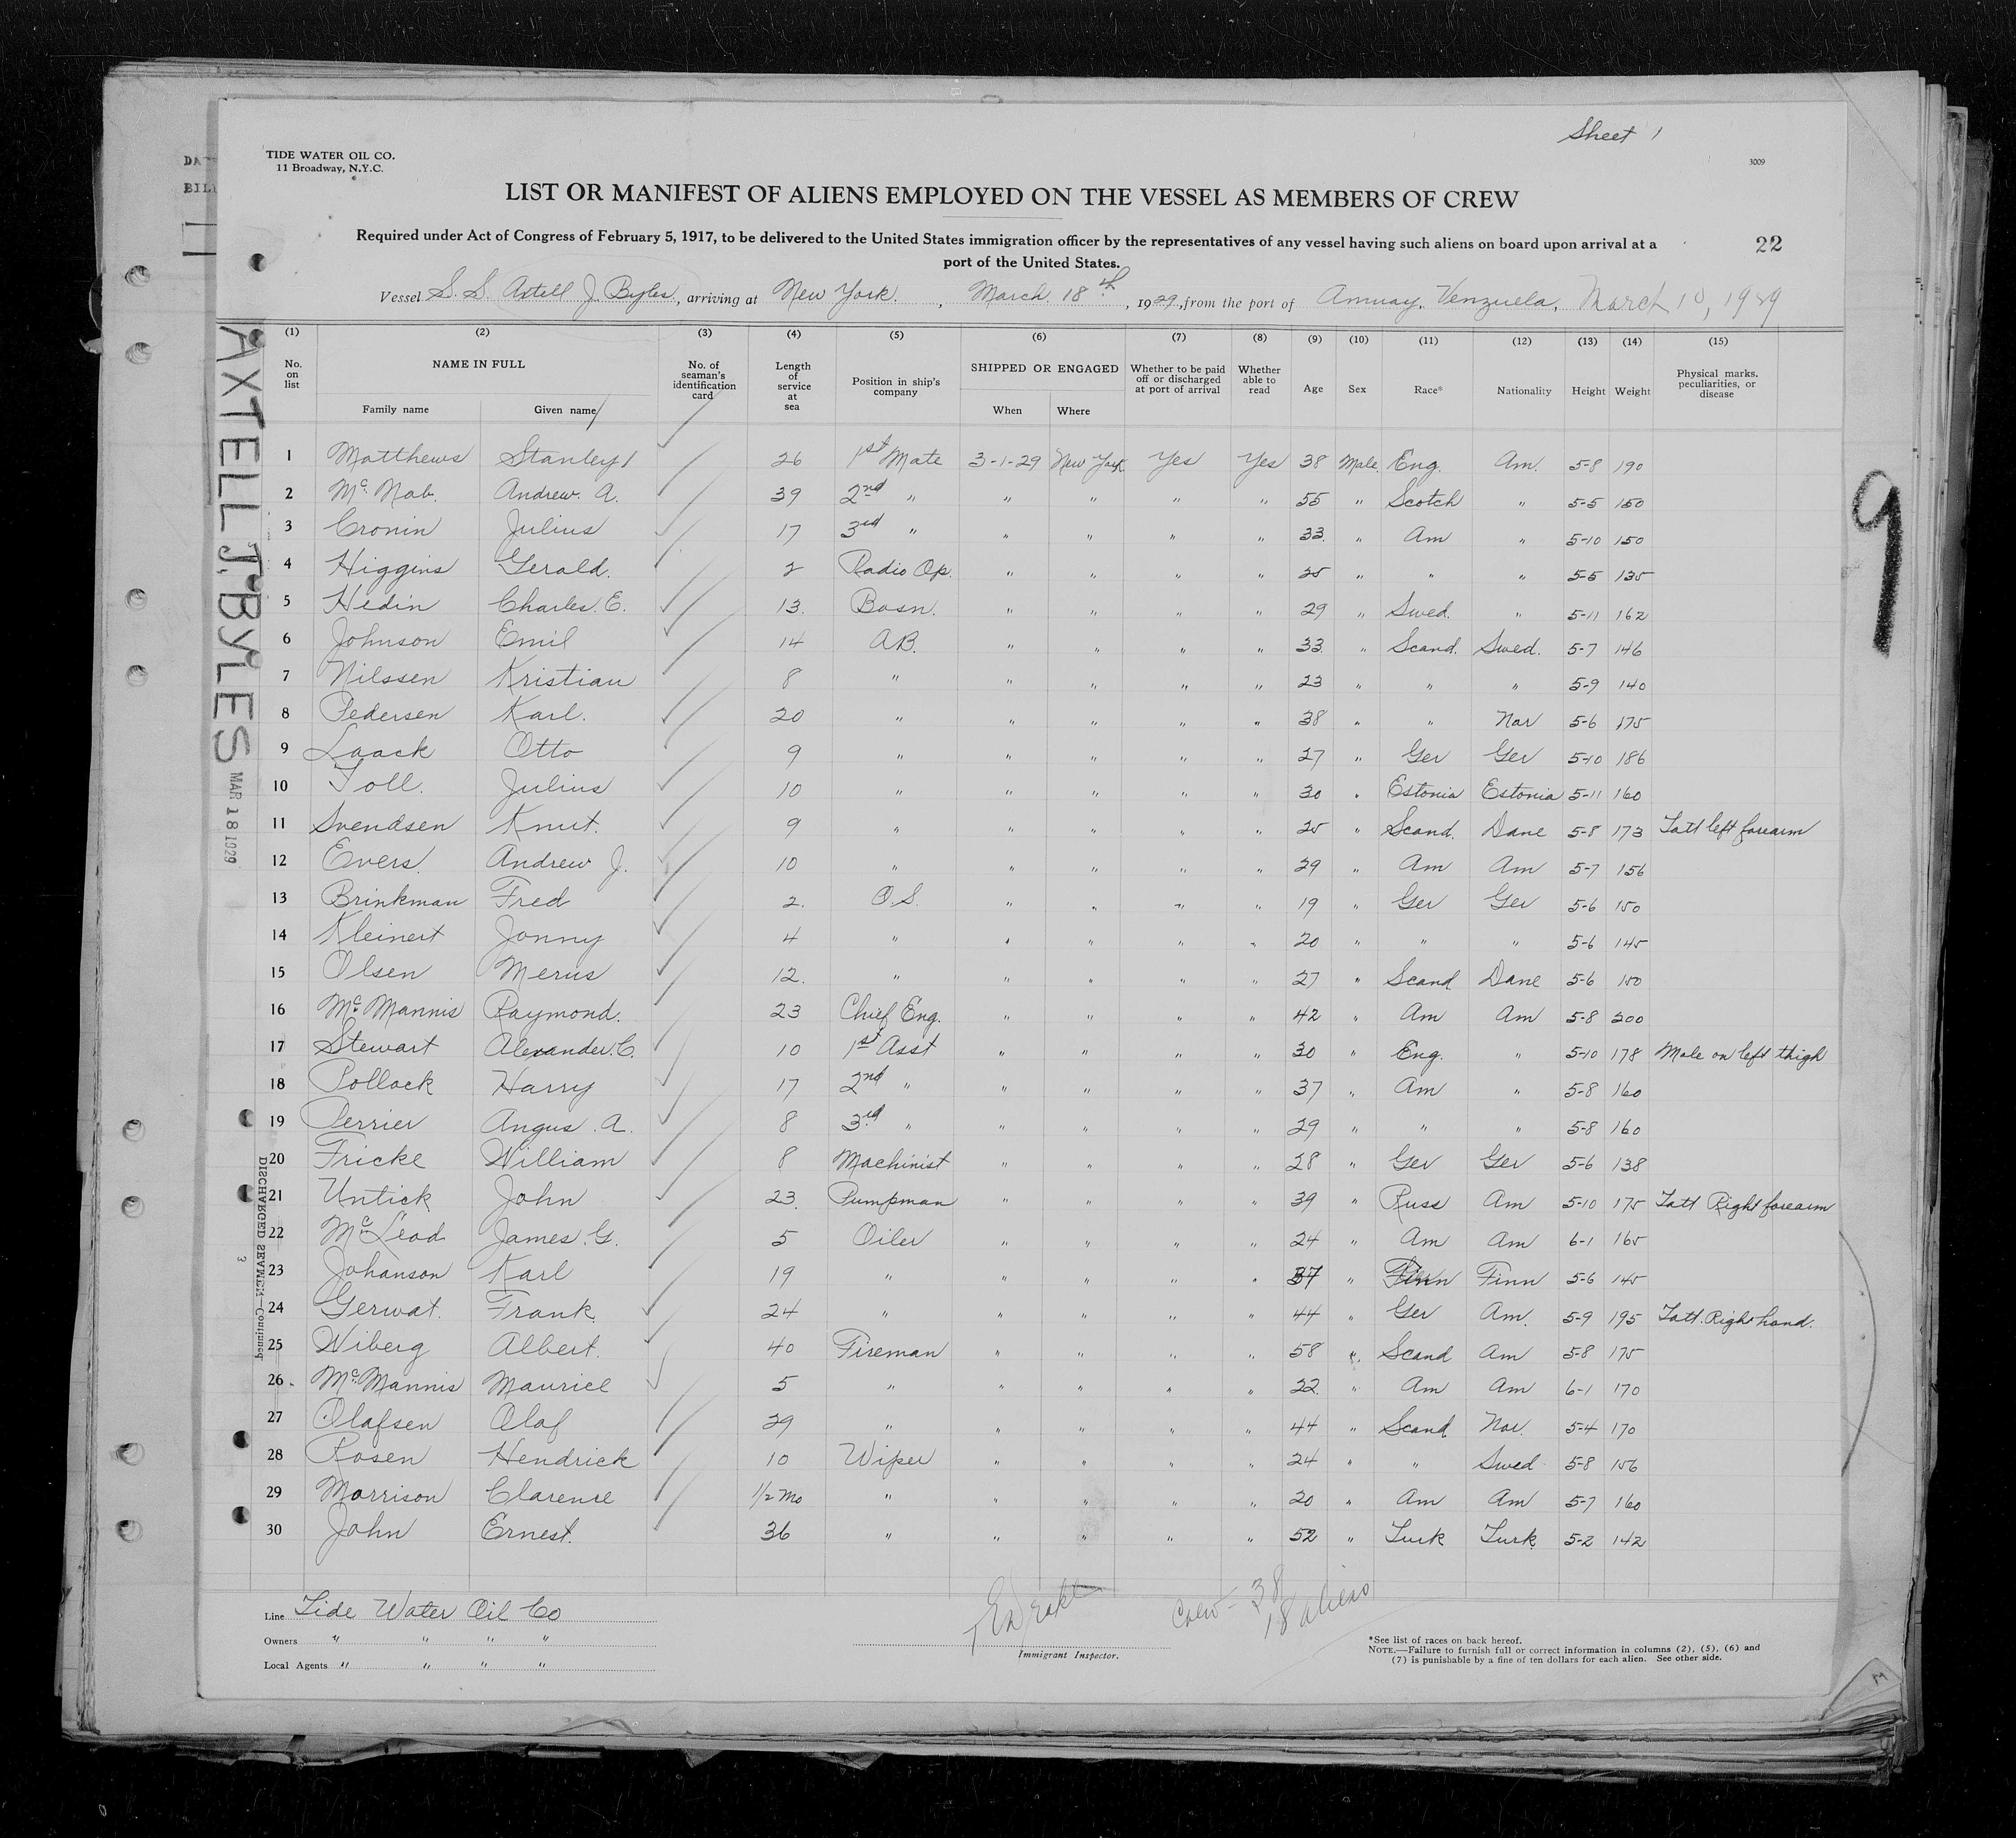 Sheet 1
TIDE WATER OIL CO.
11 Broadway, N.Y.C.
3009
LIST OR MANIFEST OF ALIENS EMPLOYED ON THE VESSEL AS MEMBERS OF CREW
Required under Act of Congress of February 5, 1917, to be delivered to the United States immigration officer by the representatives of any vessel having such aliens on board upon arrival at a
port of the United States.
22
Vessel S. S. Axtell J. Byles, arriving at New York, March 18th, 1929, from the port of Amuay, Venzuela, March 10, 1929
(1) (2) (3) (4) (5) (6) (7) (8) (9) (10) (11) (12) (13) (14) (15)
No. on list NAME IN FULL Family name Given name No. of seaman's identification card Length of service at sea Position in ship's company SHIPPED OR ENGAGED When Where Whether to be paid off or discharged at port of arrival Whether able to read Age Sex Race* Nationality Height Weight Physical marks, peculiarities, or disease
1 Matthews Stanley 26 1st Mate 3-1-29 New York Yes Yes 38 Male Eng. Am. 5-8 190
2 Mc Nab. Andrew. A. 39 2nd " " " " " 55 " Scotch " 5-5 150
3 Cronin Julius 17 3rd " " " " " 33 " Am " 5-10 150
4 Higgins Gerald. 2 Radio Op. " " " " 25 " " " 5-5 135
5 Hedin Charles. E. 13. Bosn. " " " " 29 " Swed. " 5-11 162
6 Johnson Emil 14 A.B. " " " " 33 " Scand. Swed. 5-7 146
7 Nilssen Kristian 8 " " " " " 23 " " " 5-9 140
8 Pedersen Karl. 20 " " " " " 38 " " Nor 5-6 175
9 Laack Otto 9 " " " " " 27 " Ger Ger 5-10 186
10 Toll. Julius 10 " " " " " 30 " Estonia Estonia 5-11 160
11 Svendsen Knut. 9 " " " " " 25 " Scand. Dane 5-8 173 Tatt left forearm
12 Evers. Andrew J. 10 " " " " " 29 " Am Am 5-7 156
13 Brinkman Fred 2. O.S. " " " " 19 " Ger Ger 5-6 150
14 Kleinert Jonny 4 " " " " " 20 " " " 5-6 145
15 Olsen Merius 12. " " " " " 27 " Scand Dane 5-6 150
16 Mc Mannis Raymond. 23 Chief Eng. " " " " 42 " Am Am 5-8 200
17 Stewart Alexander. C. 10 1st Asst " " " " 30 " Eng. " 5-10 178 Mole on left thigh
18 Pollack Harry 17 2nd " " " " " 37 " Am " 5-8 160
19 Perrier Angus. A. 8 3rd " " " " " 29 " " " 5-8 160
20 Fricke William 8 Machinist " " " " 28 " Ger Ger 5-6 138
21 Untick John 23. Pumpman " " " " 39 " Russ Am 5-10 175 Tatt Right forearm
22 Mc Leod James. G. 5 Oiler " " " " 24 " Am Am 6-1 165
23 Johanson Karl 19 " " " " " 37 " Finn Finn 5-6 145
24 Gerwat. Frank. 24 " " " " " 44 " Ger Am. 5-9 195 Tatt. Right hand.
25 Wiberg Albert. 40 Fireman " " " " 58 " Scand Am 5-8 175
26 Mc Mannis Maurice 5 " " " " " 22 " Am Am 6-1 170
27 Olafsen Olaf 29 " " " " " 44 " Scand Nor. 5-4 170
28 Rosen Hendrick 10 Wiper " " " " 24 " " Swed 5-8 156
29 Morrison Clarence 1/2 Mo " " " " " 20 " Am Am 5-7 160
30 John Ernest. 36 " " " " " 52 " Turk Turk 5-2 142
Line Tide Water Oil Co
Owners " " " "
Local Agents " " " "
Immigrant Inspector.
Crew - 38
18 aliens
*See list of races on back hereof.
NOTE.—Failure to furnish full or correct information in columns (2), (5), (6) and
(7) is punishable by a fine of ten dollars for each alien. See other side.
AXTELL J. BYLES
MAR 18 1929
DISCHARGED SEAMEN—Continued
3
9